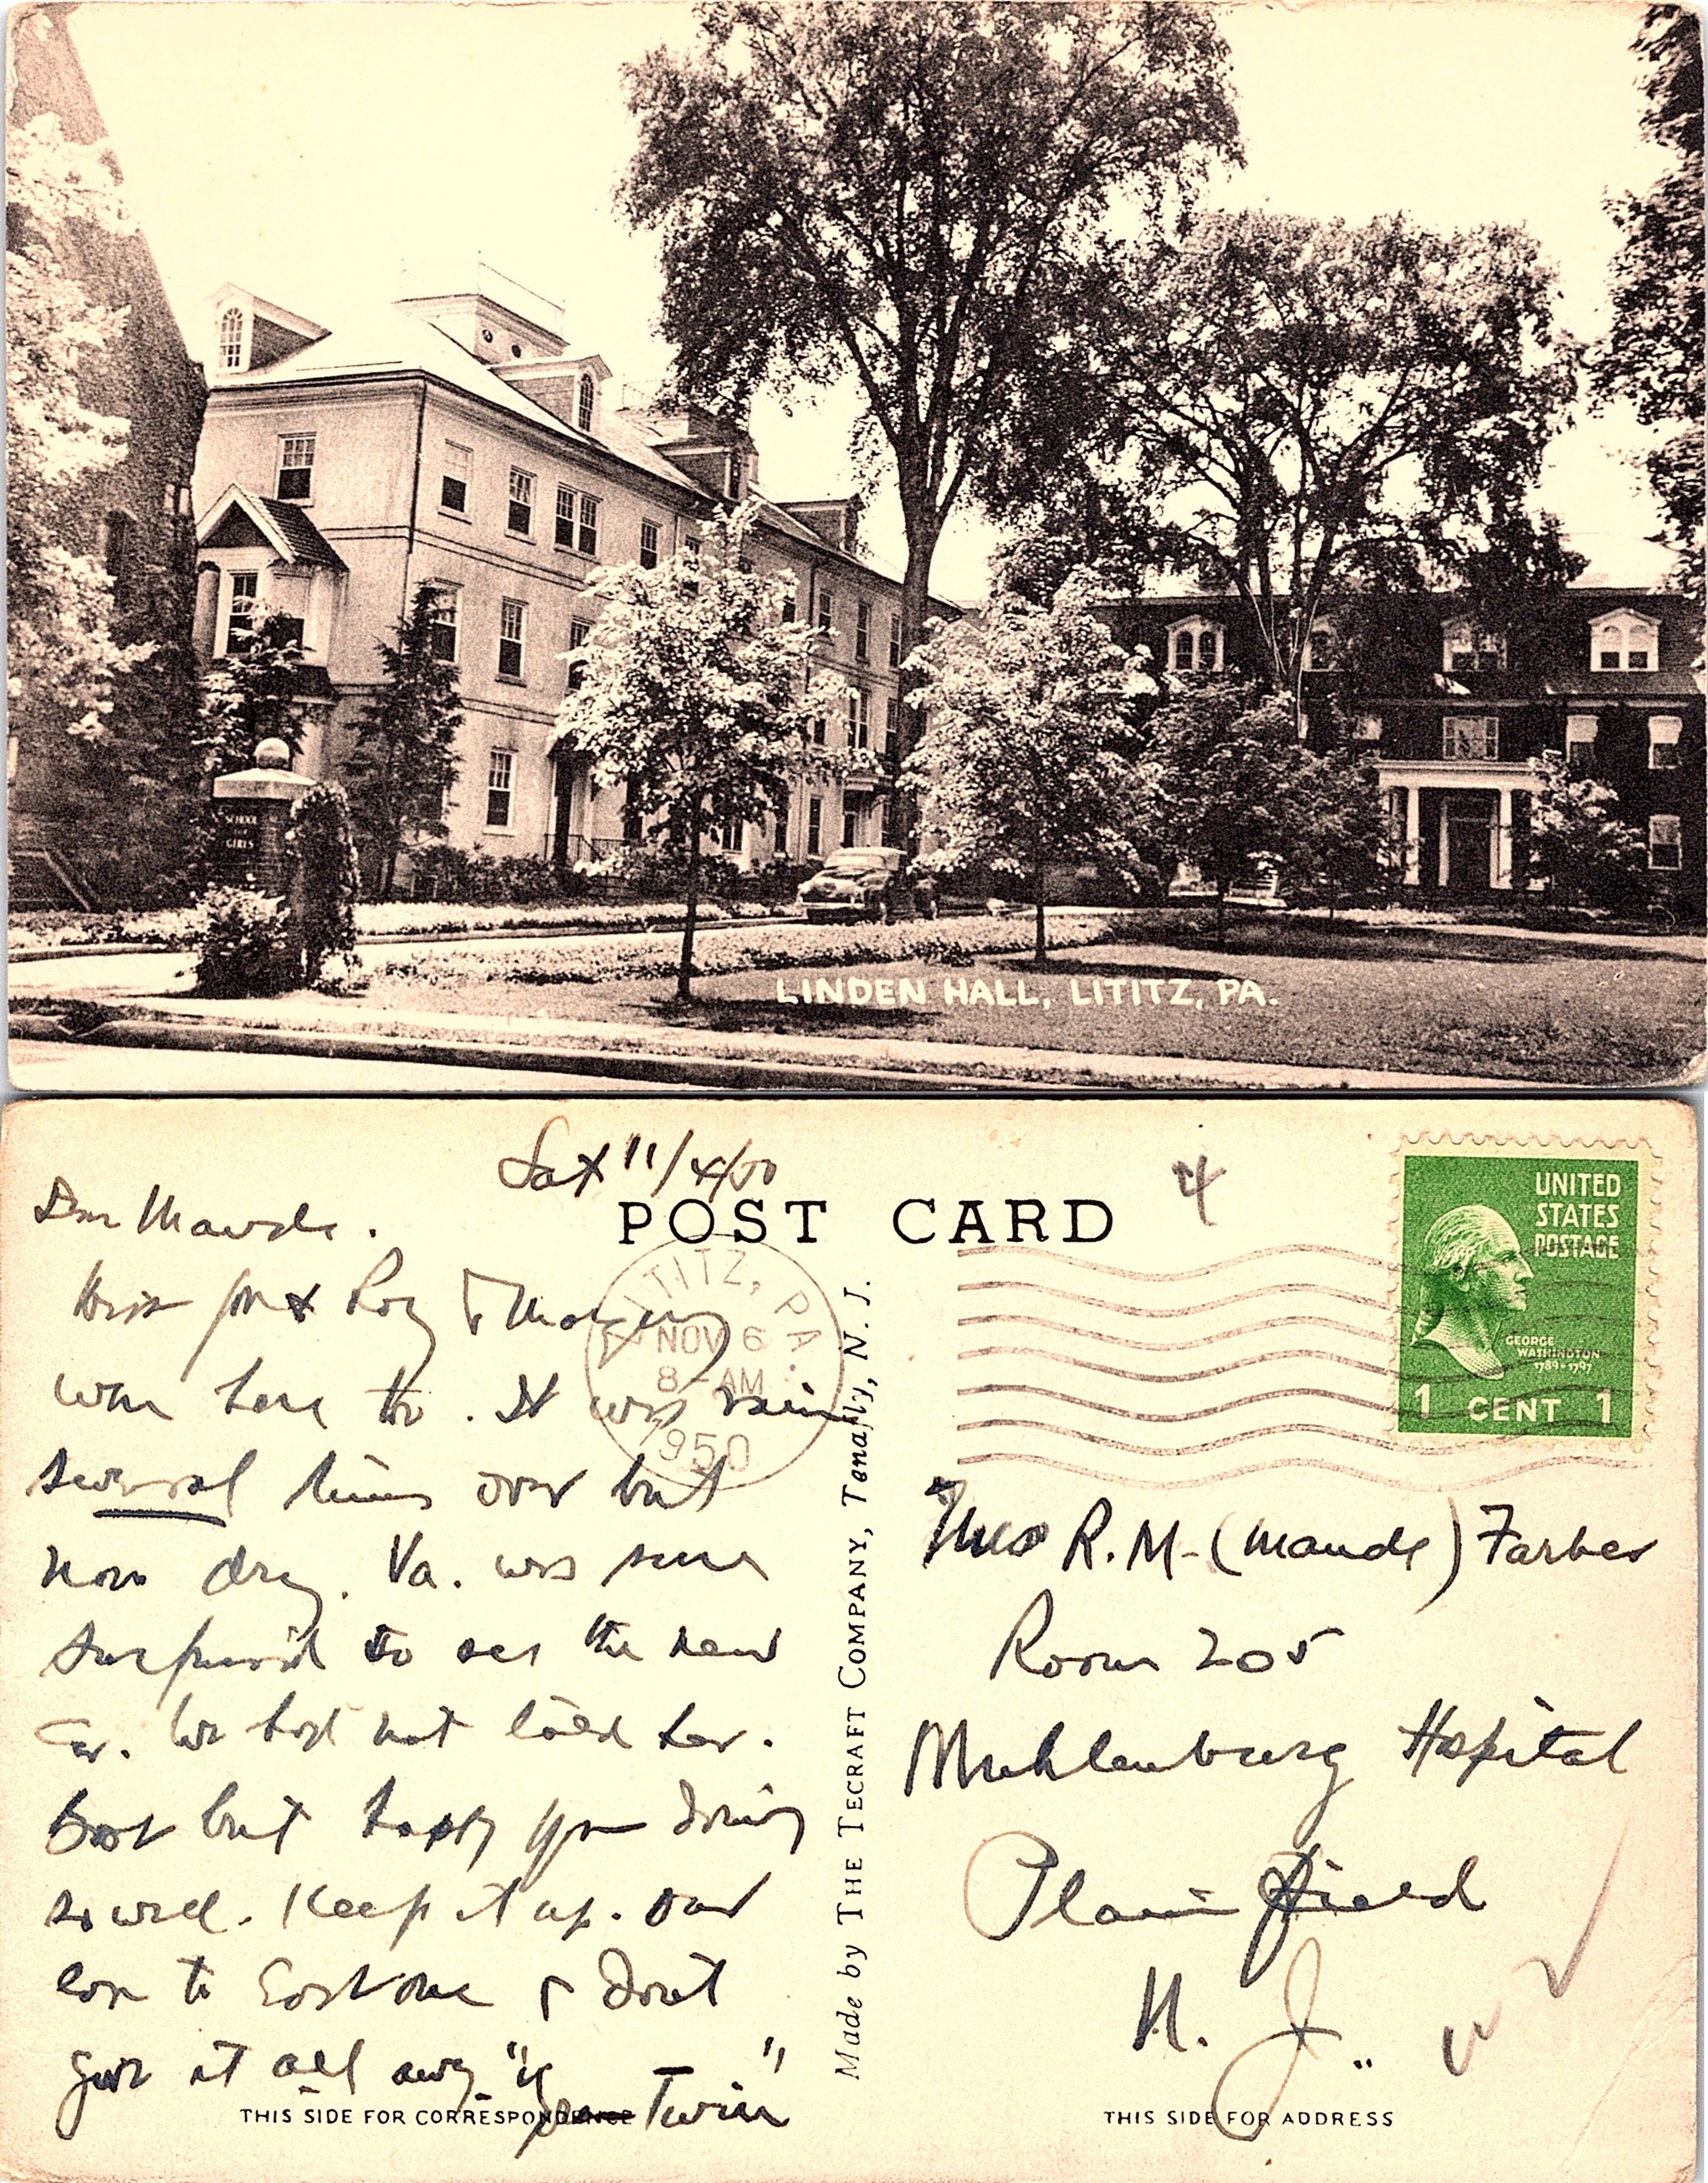 SCHOOL
GIRLS
LINDEN HALL, LITITZ, PA.
Sat 11/4/50
POST CARD
4
Dear Maude.
Roy & 
LITITZ, PA.
NOV 6
8-AM
1950
were here too. It was rain
several times over but
now dry. Va. was sure
surprised to see the new
car. We had not told her.
but happy your doing
so well. Keep it up. our
love to & don't
give it all away "
Your Twin"
THIS SIDE FOR CORRESPONDENCE
Made by THE TECRAFT COMPANY, Tenafly, N. J.
UNITED
STATES
POSTAGE
GEORGE
WASHINGTON
1789-1797
1 CENT 1
Mrs R. M. (Maude) Farber
Room 205
Muhlenburg Hospital
Plainfield
N. J.
THIS SIDE FOR ADDRESS